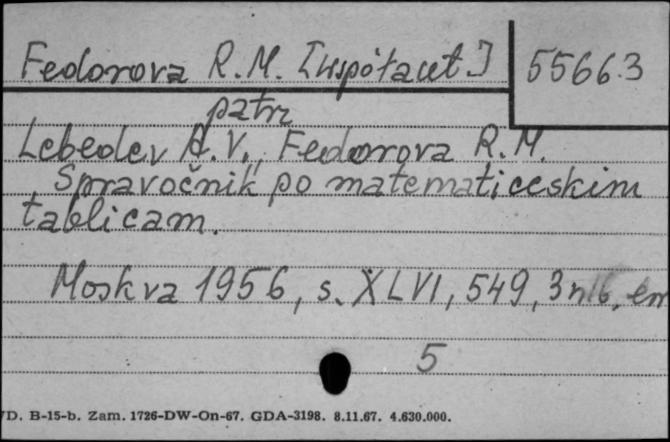 Fedorova R.M. [współaut.] 55663
patrz
Lebedev A.V., Fedorova R.M.
Spravočnik po matematičeskim
tablicam.
Moskva 1956, s. XLVI, 549, 3
5
D. B-15-b. Zam. 1726-DW-On-67. GDA-3198. 8.11.67. 4.630.000.